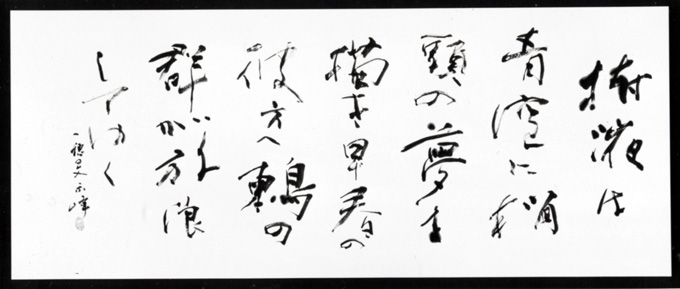 樹液は
青空に梢
頭の夢を
描き早春の
彼方へ鶫の
群が放浪
してゆく
一穂